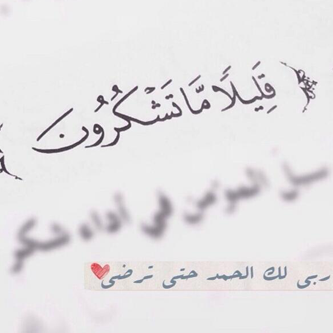 ﴿ قَلِيلًا مَّا تَشْكُرُونَ ﴾
سبل المؤمن في أداء شكر
ربي لك الحمد حتى ترضى ❤